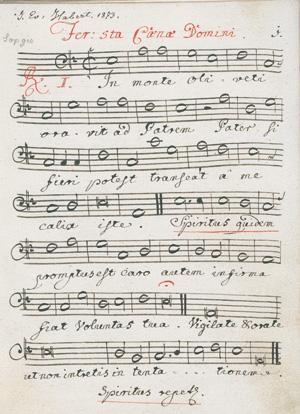 J. Ev: Habert. 1873.
Fer: 5ta Cœnæ Domini 1.
R. I. In monte Oli - veti
ora - vit ad Patrem Pater si
fieri potest transeat a me
calix iste. Spiritus quidem
promptus est caro autem infirma
fiat Voluntas tua. Vigilate & orate
ut non intretis in tenta - - - tionem.
Spiritus repet: